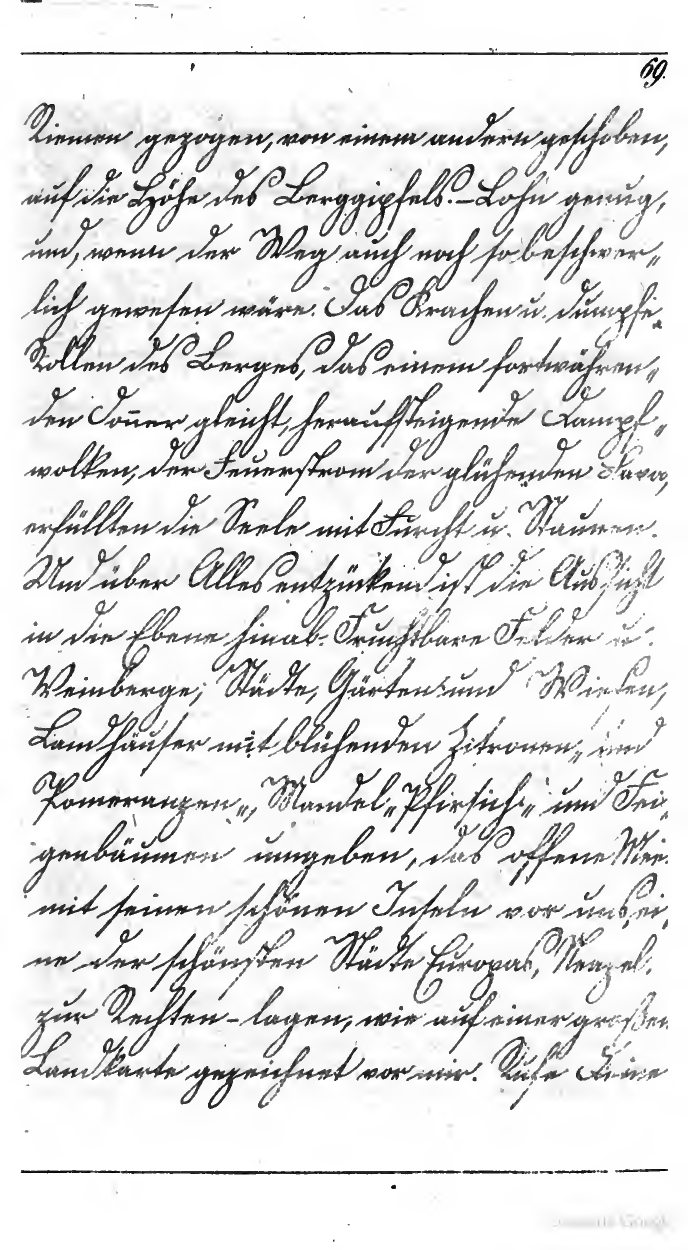 69.
Riemen gezogen, von einem andern geschoben,
auf die Höhe des Berggipfels. – Lohn genug,
und, wenn der Weg auch noch so beschwer„
lich gewesen wäre. Das Krachen u. dumpfe
Rollen des Berges, das einem fortwähren„
den Doñer gleicht, heraufsteigende Dampf„
wolken, der Feuerstrom der glühenden Lava,
erfüllten die Seele mit Furcht u. Staunen.
Und über Alles entzückend ist die Aussicht
in die Ebene hinab. Fruchtbare Felder u.
Weinberge, Städte, Gärten und Wiesen,
Landhäuser mit blühenden Zitronen„ und
Pomeranzen„, Mandel„ Pfirsich„ und Fei„
genbäumen umgeben, das offene Meer
mit seinen schönen Inseln vor uns, ei„
ne der schönsten Städte Europas, Neapel,
zur Rechten – lagen, wie auf einer großen
Landkarte gezeichnet vor mir. Rufe Deine